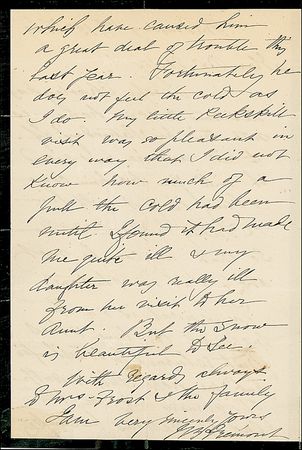 which have caused him
a great deal of trouble this
last year. Fortunately he
does not feel the cold as
I do. My little Peekskill
visit was so pleasant in
every way that I did not
know how much of a
pull the cold had been
until I found it had made
me quite ill & my
daughter was really ill
from her visit to her
Aunt. But the snow
is beautiful to see.
With regards always
to Mrs. Frost & the family
I am very sincerely yours
Frémont